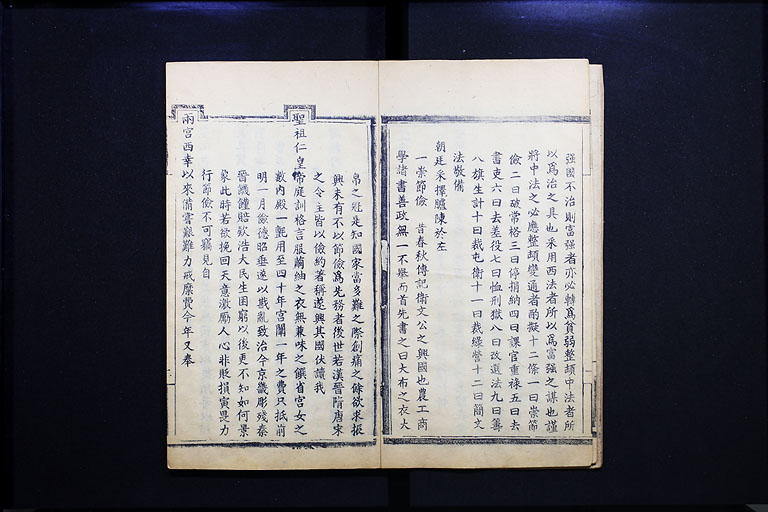 強國不治則富強者亦必轉為貧弱整頓中法者所
以為治之具也采用西法者所以為富強之謀也謹
將中法之必應整頓變通者酌擬十二條一曰崇節
儉二曰破常格三曰停捐納四曰課官重祿五曰去
書吏六曰去差役七曰恤刑獄八曰改選法九曰籌
八旗生計十曰裁屯衛十一曰裁綠營十二曰簡文
法敬備
朝廷采擇臚陳於左
一崇節儉 昔春秋傳記衛文公之興國也農工商
學諸書善政無一不舉而首先書之曰大布之衣大
帛之冠是知國家當多難之際創痛之餘欲求振
興未有不以節儉為先務者後世若漢晉隋唐宋
之令主皆以儉約著稱遂興其國伏讀我
聖祖仁皇帝庭訓格言服繭紬之衣無兼味之饌省宮女之
數內殿一氈用至四十年宮闈一年之費只抵前
明一月儉德昭垂遂以戡亂致治今京畿彫殘秦
晉饑饉賠欵浩大民生困窮以後更不知如何景
象此時若欲挽回天意激厲人心非貶損寅畏力
行節儉不可竊見自
兩宮西幸以來備嘗艱難力戒糜費今年又奉